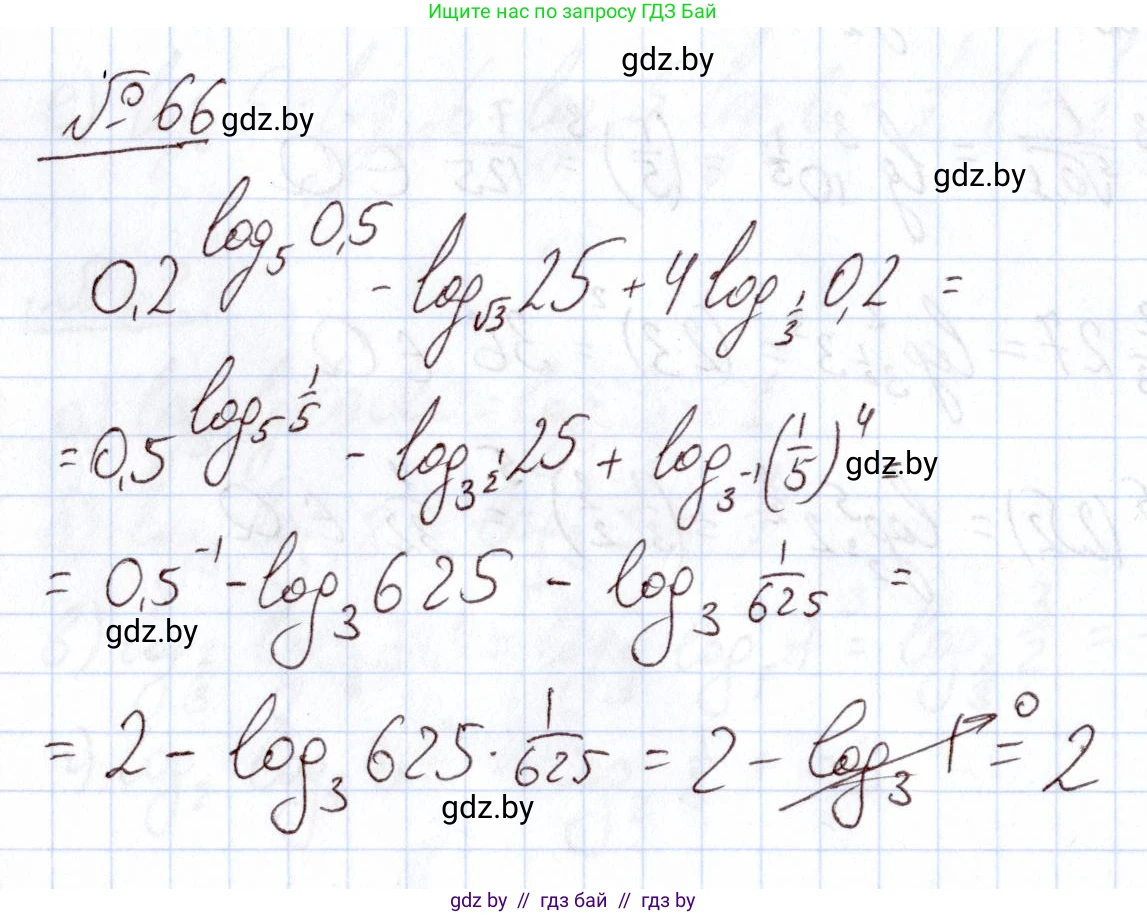 Ищите нас по запросу ГДЗ Бай
gdz.by
№ 66 gdz.by
gdz.by
0,2^{log_5 0,5} - log_{√3} 25 + 4 log_{1/3} 0,2 =
= 0,5^{log_5 1/5} - log_{3^{1/2}} 25 + log_{3^{-1}} (1/5)^4 =
gdz.by
= 0,5^{-1} - log_3 625 - log_3 1/625 =
gdz.by
= 2 - log_3 625 · 1/625 = 2 - log_3 1 → 0 = 2
gdz.by
gdz by // гдз бай // гдз by